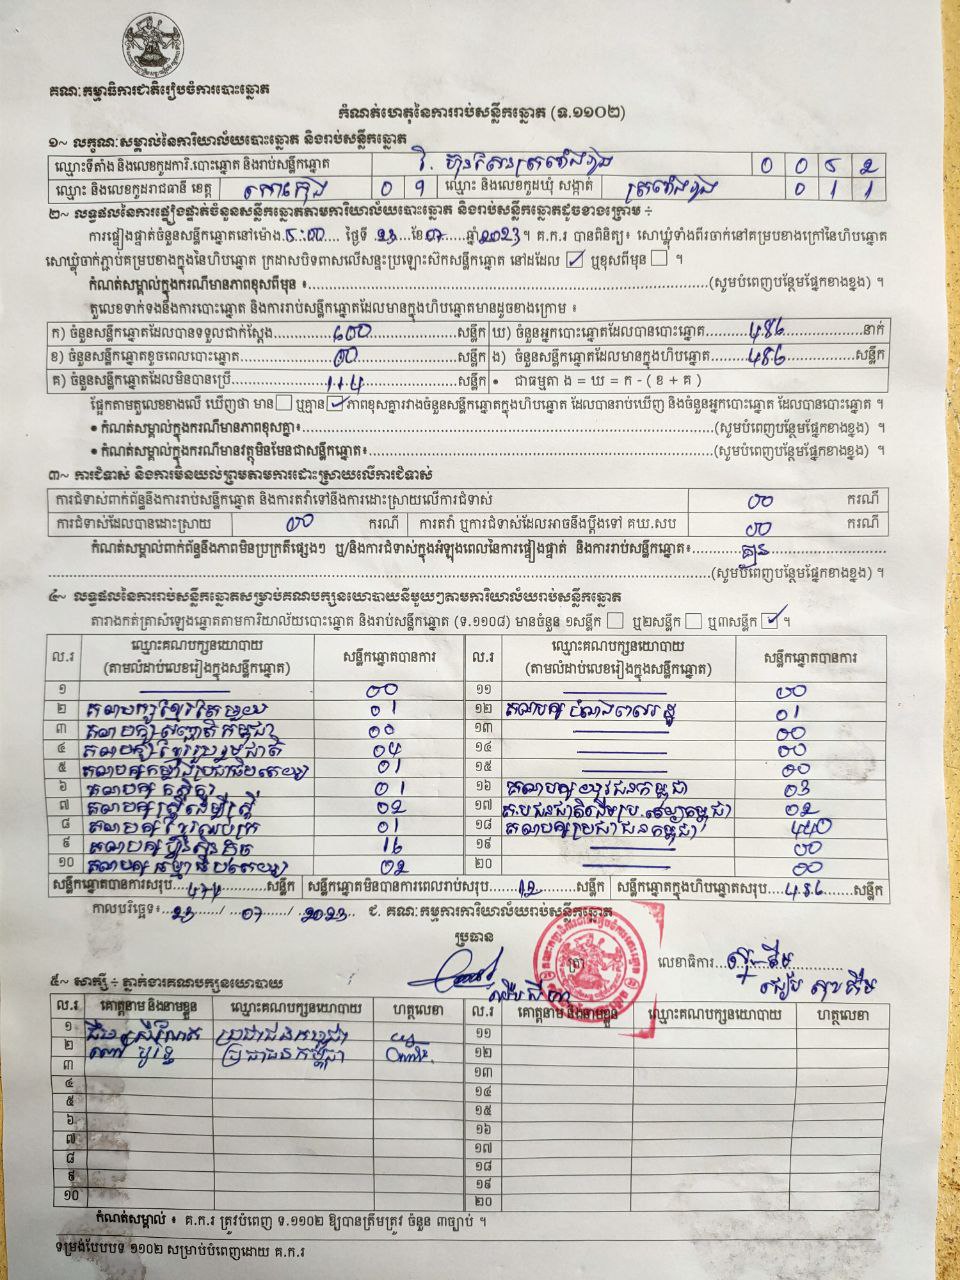 គណៈកម្មាធិការជាតិរៀបចំការបោះឆ្នោត
កំណត់ហេតុនៃការរាប់សន្លឹកឆ្នោត (ទ.១១០២)
១~ លក្ខណៈសម្គាល់នៃការិយាល័យបោះឆ្នោត និងរាប់សន្លឹកឆ្នោត
ឈ្មោះទីតាំង និងលេខកូដការិ.បោះឆ្នោត និងរាប់សន្លឹកឆ្នោត 0 0 5 2
ឈ្មោះ និងលេខកូដរាជធានី ខេត្ត កោះកុង 0 9 ឈ្មោះ និងលេខកូដឃុំ សង្កាត់ 0 1 1
២~ លទ្ធផលនៃការផ្ទៀងផ្ទាត់ចំនួនសន្លឹកឆ្នោតតាមការិយាល័យបោះឆ្នោត និងរាប់សន្លឹកឆ្នោតដូចខាងក្រោម ÷
ការផ្ទៀងផ្ទាត់ចំនួនសន្លឹកឆ្នោតនៅម៉ោង 5:00 ថ្ងៃទី 23 ខែ 07 ឆ្នាំ 2023 ។ គ.ក.រ បានពិនិត្យ៖ សោឃ្លុំទាំងពីរចាក់នៅគម្របខាងក្រៅនៃហិបឆ្នោត
សោឃ្លុំចាក់ភ្ជាប់គម្របខាងក្នុងនៃហិបឆ្នោត ក្រដាសបិទពាសលើសន្ទះប្រឡោះសិកសន្លឹកឆ្នោត នៅដដែល ☑ ឬខុសពីមុន ☐ ។
កំណត់សម្គាល់ក្នុងករណីមានភាពខុសពីមុន ៖ (សូមបំពេញបន្ថែមផ្នែកខាងខ្នង) ។
តួលេខទាក់ទងនឹងការបោះឆ្នោត និងការរាប់សន្លឹកឆ្នោតដែលមានក្នុងហិបឆ្នោតមានដូចខាងក្រោម ៖
ក) ចំនួនសន្លឹកឆ្នោតដែលបានទទួលជាក់ស្តែង 600 សន្លឹក ឃ) ចំនួនអ្នកបោះឆ្នោតដែលបានបោះឆ្នោត 486 នាក់
ខ) ចំនួនសន្លឹកឆ្នោតខូចពេលបោះឆ្នោត 00 សន្លឹក ង) ចំនួនសន្លឹកឆ្នោតដែលមានក្នុងហិបឆ្នោត 486 សន្លឹក
គ) ចំនួនសន្លឹកឆ្នោតដែលមិនបានប្រើ 114 សន្លឹក • ជាធម្មតា ង = ឃ = ក - ( ខ + គ )
ផ្អែកតាមតួលេខខាងលើ ឃើញថា មាន ☐ ឬគ្មាន ☑ ភាពខុសគ្នារវាងចំនួនសន្លឹកឆ្នោតក្នុងហិបឆ្នោត ដែលបានរាប់ឃើញ និងចំនួនអ្នកបោះឆ្នោត ដែលបានបោះឆ្នោត ។
• កំណត់សម្គាល់ក្នុងករណីមានភាពខុសគ្នា៖ (សូមបំពេញបន្ថែមផ្នែកខាងខ្នង) ។
• កំណត់សម្គាល់ក្នុងករណីមានវត្ថុមិនមែនជាសន្លឹកឆ្នោត៖ (សូមបំពេញបន្ថែមផ្នែកខាងខ្នង) ។
៣~ ការជំទាស់ និងការមិនយល់ព្រមតាមការដោះស្រាយលើការជំទាស់
ការជំទាស់ពាក់ព័ន្ធនឹងការរាប់សន្លឹកឆ្នោត និងការតវ៉ាទៅនឹងការដោះស្រាយលើការជំទាស់ 00 ករណី
ការជំទាស់ដែលបានដោះស្រាយ 00 ករណី ការតវ៉ា ឬការជំទាស់ដែលអាចនឹងប្តឹងទៅ គឃ.សប 00 ករណី
កំណត់សម្គាល់ពាក់ព័ន្ធនឹងភាពមិនប្រក្រតីផ្សេងៗ ឬ/និងការជំទាស់ក្នុងអំឡុងពេលនៃការផ្ទៀងផ្ទាត់ និងការរាប់សន្លឹកឆ្នោត៖ គ្មាន
(សូមបំពេញបន្ថែមផ្នែកខាងខ្នង) ។
៤~ លទ្ធផលនៃការរាប់សន្លឹកឆ្នោតសម្រាប់គណបក្សនយោបាយនីមួយៗតាមការិយាល័យរាប់សន្លឹកឆ្នោត
តារាងកត់ត្រាសំឡេងឆ្នោតតាមការិយាល័យបោះឆ្នោត និងរាប់សន្លឹកឆ្នោត (ទ.១១០៨) មានចំនួន ១សន្លឹក ☐ ឬ២សន្លឹក ☐ ឬ៣សន្លឹក ☑ ។
ល.រ ឈ្មោះគណបក្សនយោបាយ (តាមលំដាប់លេខរៀងក្នុងសន្លឹកឆ្នោត) សន្លឹកឆ្នោតបានការ ល.រ ឈ្មោះគណបក្សនយោបាយ (តាមលំដាប់លេខរៀងក្នុងសន្លឹកឆ្នោត) សន្លឹកឆ្នោតបានការ
១ 00 ១១ 00
២ គណបក្សខ្មែរតែមួយ 01 ១២ គណបក្ស 01
៣ គណបក្ស 00 ១៣ 00
៤ គណបក្សខ្មែររួបរួមជាតិ 04 ១៤ 00
៥ គណបក្សកម្លាំងប្រជាធិបតេយ្យ 01 ១៥ 00
៦ គណបក្សកសិករ 01 ១៦ គណបក្សយុវជនកម្ពុជា 03
៧ គណបក្សស្ត្រីដើម្បីស្ត្រី 02 ១៧ គ.ប ជនជាតិដើមប្រ.តេយ្យកម្ពុជា 02
៨ គណបក្សខ្មែរ 01 ១៨ គណបក្សប្រជាជនកម្ពុជា 440
៩ គណបក្សហ៊្វុនស៊ិនប៉ិច 16 ១៩ 00
១០ គណបក្ស 02 ២០ 00
សន្លឹកឆ្នោតបានការសរុប 474 សន្លឹក សន្លឹកឆ្នោតមិនបានការពេលរាប់សរុប 12 សន្លឹក សន្លឹកឆ្នោតក្នុងហិបឆ្នោតសរុប 486 សន្លឹក
កាលបរិច្ឆេទ៖ 23 / 07 / 2023 ជ. គណៈកម្មការការិយាល័យរាប់សន្លឹកឆ្នោត
ប្រធាន
ត្រា លេខាធិការ
៥~ សាក្សី ÷ ភ្នាក់ងារគណបក្សនយោបាយ
ល.រ គោត្តនាម និងនាមខ្លួន ឈ្មោះគណបក្សនយោបាយ ហត្ថលេខា ល.រ គោត្តនាម និងនាមខ្លួន ឈ្មោះគណបក្សនយោបាយ ហត្ថលេខា
១ ប្រជាជនកម្ពុជា ១១
២ ប្រជាជនកម្ពុជា ១២
៣ ១៣
៤ ១៤
៥ ១៥
៦ ១៦
៧ ១៧
៨ ១៨
៩ ១៩
១០ ២០
កំណត់សម្គាល់ ៖ គ.ក.រ ត្រូវបំពេញ ទ.១១០២ ឱ្យបានត្រឹមត្រូវ ចំនួន ៣ច្បាប់ ។
ទម្រង់បែបបទ ១១០២ សម្រាប់បំពេញដោយ គ.ក.រ